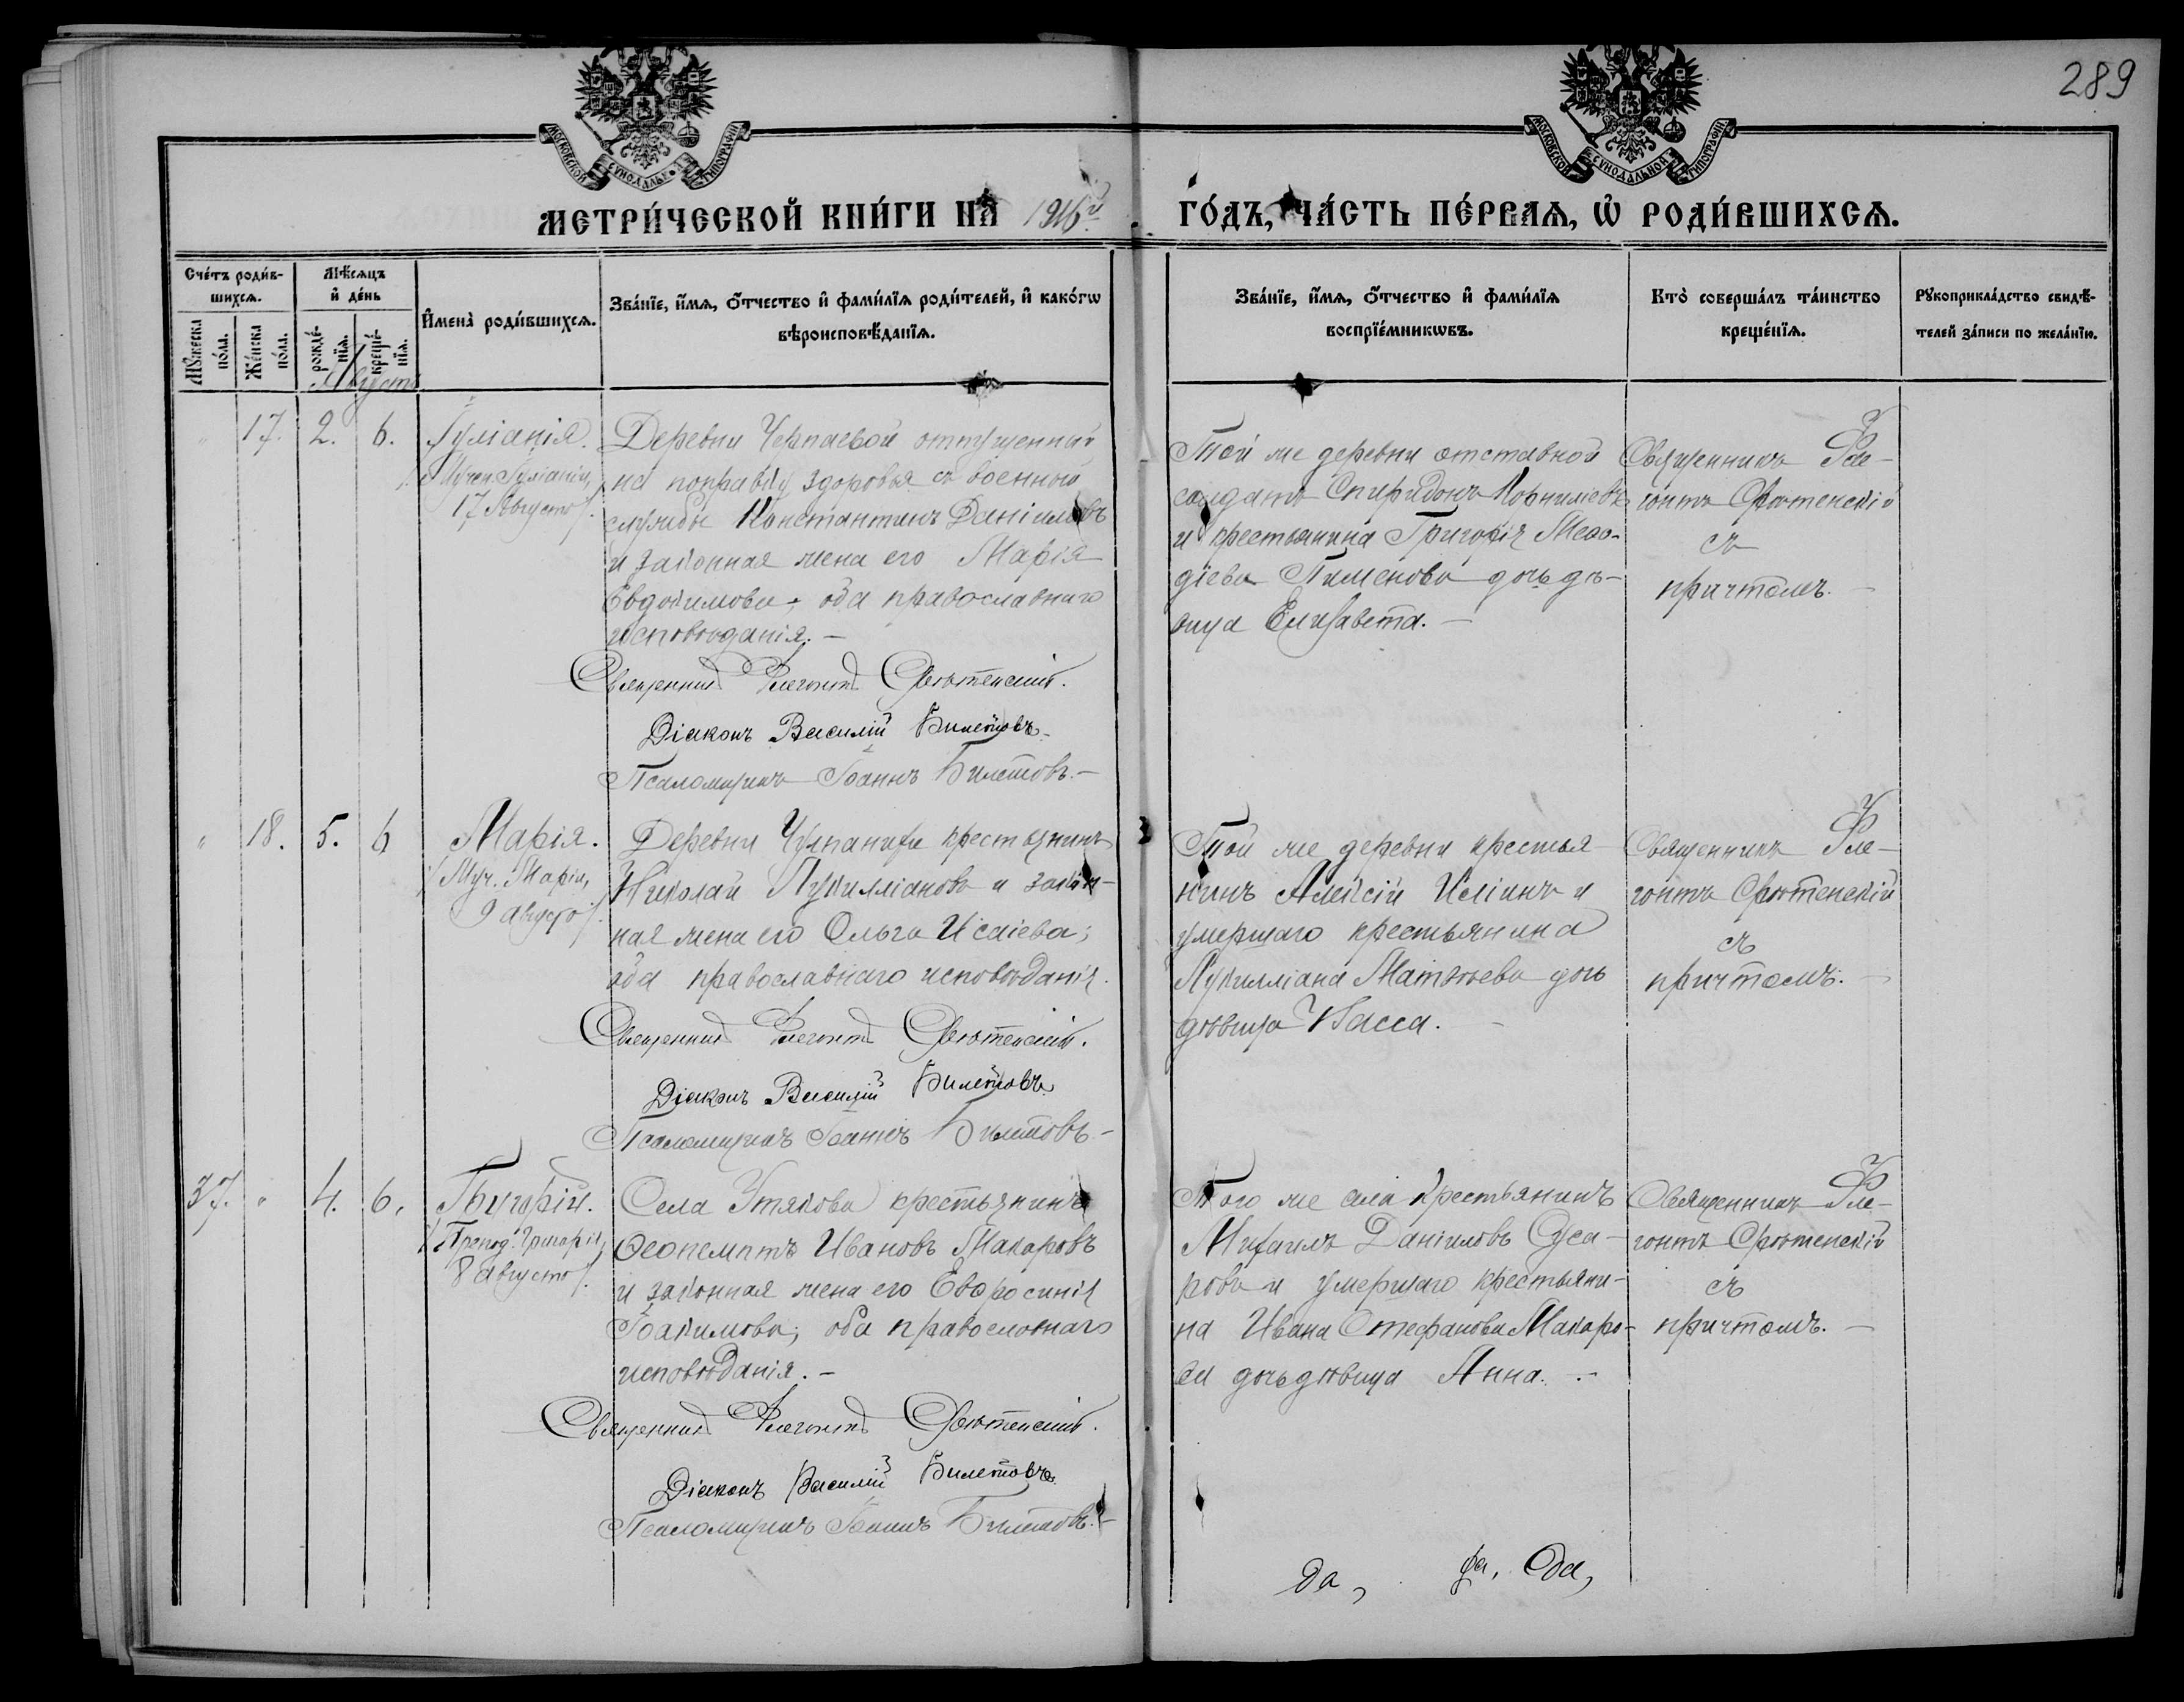 289
МОСКОВСКОЙ СѴНОДАЛЬНОЙ ТИПОГРАФІИ
МОСКОВСКОЙ СѴНОДАЛЬНОЙ ТИПОГРАФІИ
МЕТРИ́ЧЕСКОЙ КНИ́ГИ НА 1916й ГО́ДЪ, ЧА́СТЬ ПЕ́РВАЯ, Ѡ҆ РОДИ́ВШИХСЯ.
Сче́тъ роди́в-
шихся.
Мꙋ́жеска
по́ла.
Же́нска
по́ла.
Мѣ́сяцъ
и҆ де́нь
рожде́-
нїя.
креще́-
нїя.
И҆мена̀ роди́вшихся.
Зва́нїе, и҆́мя, ѻ҆́тчество и҆ фами́лїя роди́телей, и҆ како́гѡ
вѣроисповѣ́данїя.
Зва́нїе, и҆́мя, ѻ҆́тчество и҆ фами́лїя
воспрїе́мникѡвъ.
Кто̀ соверша́лъ та́инство
креще́нїя.
Рꙋкоприкла́дство свидѣ́-
телей за́писи по жела́нїю.
Августъ
" 17. 2. 6.
Іуліанія.
/Мучен. Іуліаніи,
17 Августа/.
Деревни Черпаевой отпущенный
на поправку здоровья съ военной
службы Константинъ Даніиловъ
и законная жена его Марія
Евдокимова; оба православнаго
исповѣданія. –
Священникъ Флегонтъ Срѣтенскій.
Діаконъ Василій Билетовъ.
Псаломщикъ Іоаннъ Билетовъ. –
Той же деревни отставной
солдатъ Спиридонъ Корниліевъ
и крестьянина Григорія Меѳо-
діева Пименова дочь дѣ-
вица Елизавета. –
Священникъ Фле-
гонтъ Срѣтенскій
съ
причтомъ. –
" 18. 5. 6
Марія.
/Муч. Маріи,
9 августа/.
Деревни Чулпанихи крестьянинъ
Николай Лукилліановъ и закон-
ная жена его Ольга Исаіева;
оба православнаго исповѣданія.
Священникъ Флегонтъ Срѣтенскій.
Діаконъ Василій Билетовъ.
Псаломщикъ Іоаннъ Билетовъ –
Той же деревни крестья
нинъ Алексій Иліинъ и
умершаго крестьянина
Лукилліана Матвѣева дочь
дѣвица Васса. –
Священникъ Фле-
гонтъ Срѣтенскій
съ
причтомъ. –
37. " 4. 6.
Григорій.
/Препод. Григорія,
8 августа/.
Села Утякова крестьянинъ
Ѳеопемптъ Ивановъ Макаровъ
и законная жена его Евфросинія
Іоакимова; оба православнаго
исповѣданія. –
Священникъ Флегонтъ Срѣтенскій.
Діаконъ Василій Билетовъ.
Псаломщикъ Іоаннъ Билетовъ. –
Того же села крестьянинъ
Михаилъ Даніиловъ
и умершаго крестьяни-
на Ивана Стефанова Макаро-
ва дочь дѣвица Анна. –
Священникъ Фле-
гонтъ Срѣтенскій
съ
причтомъ. –